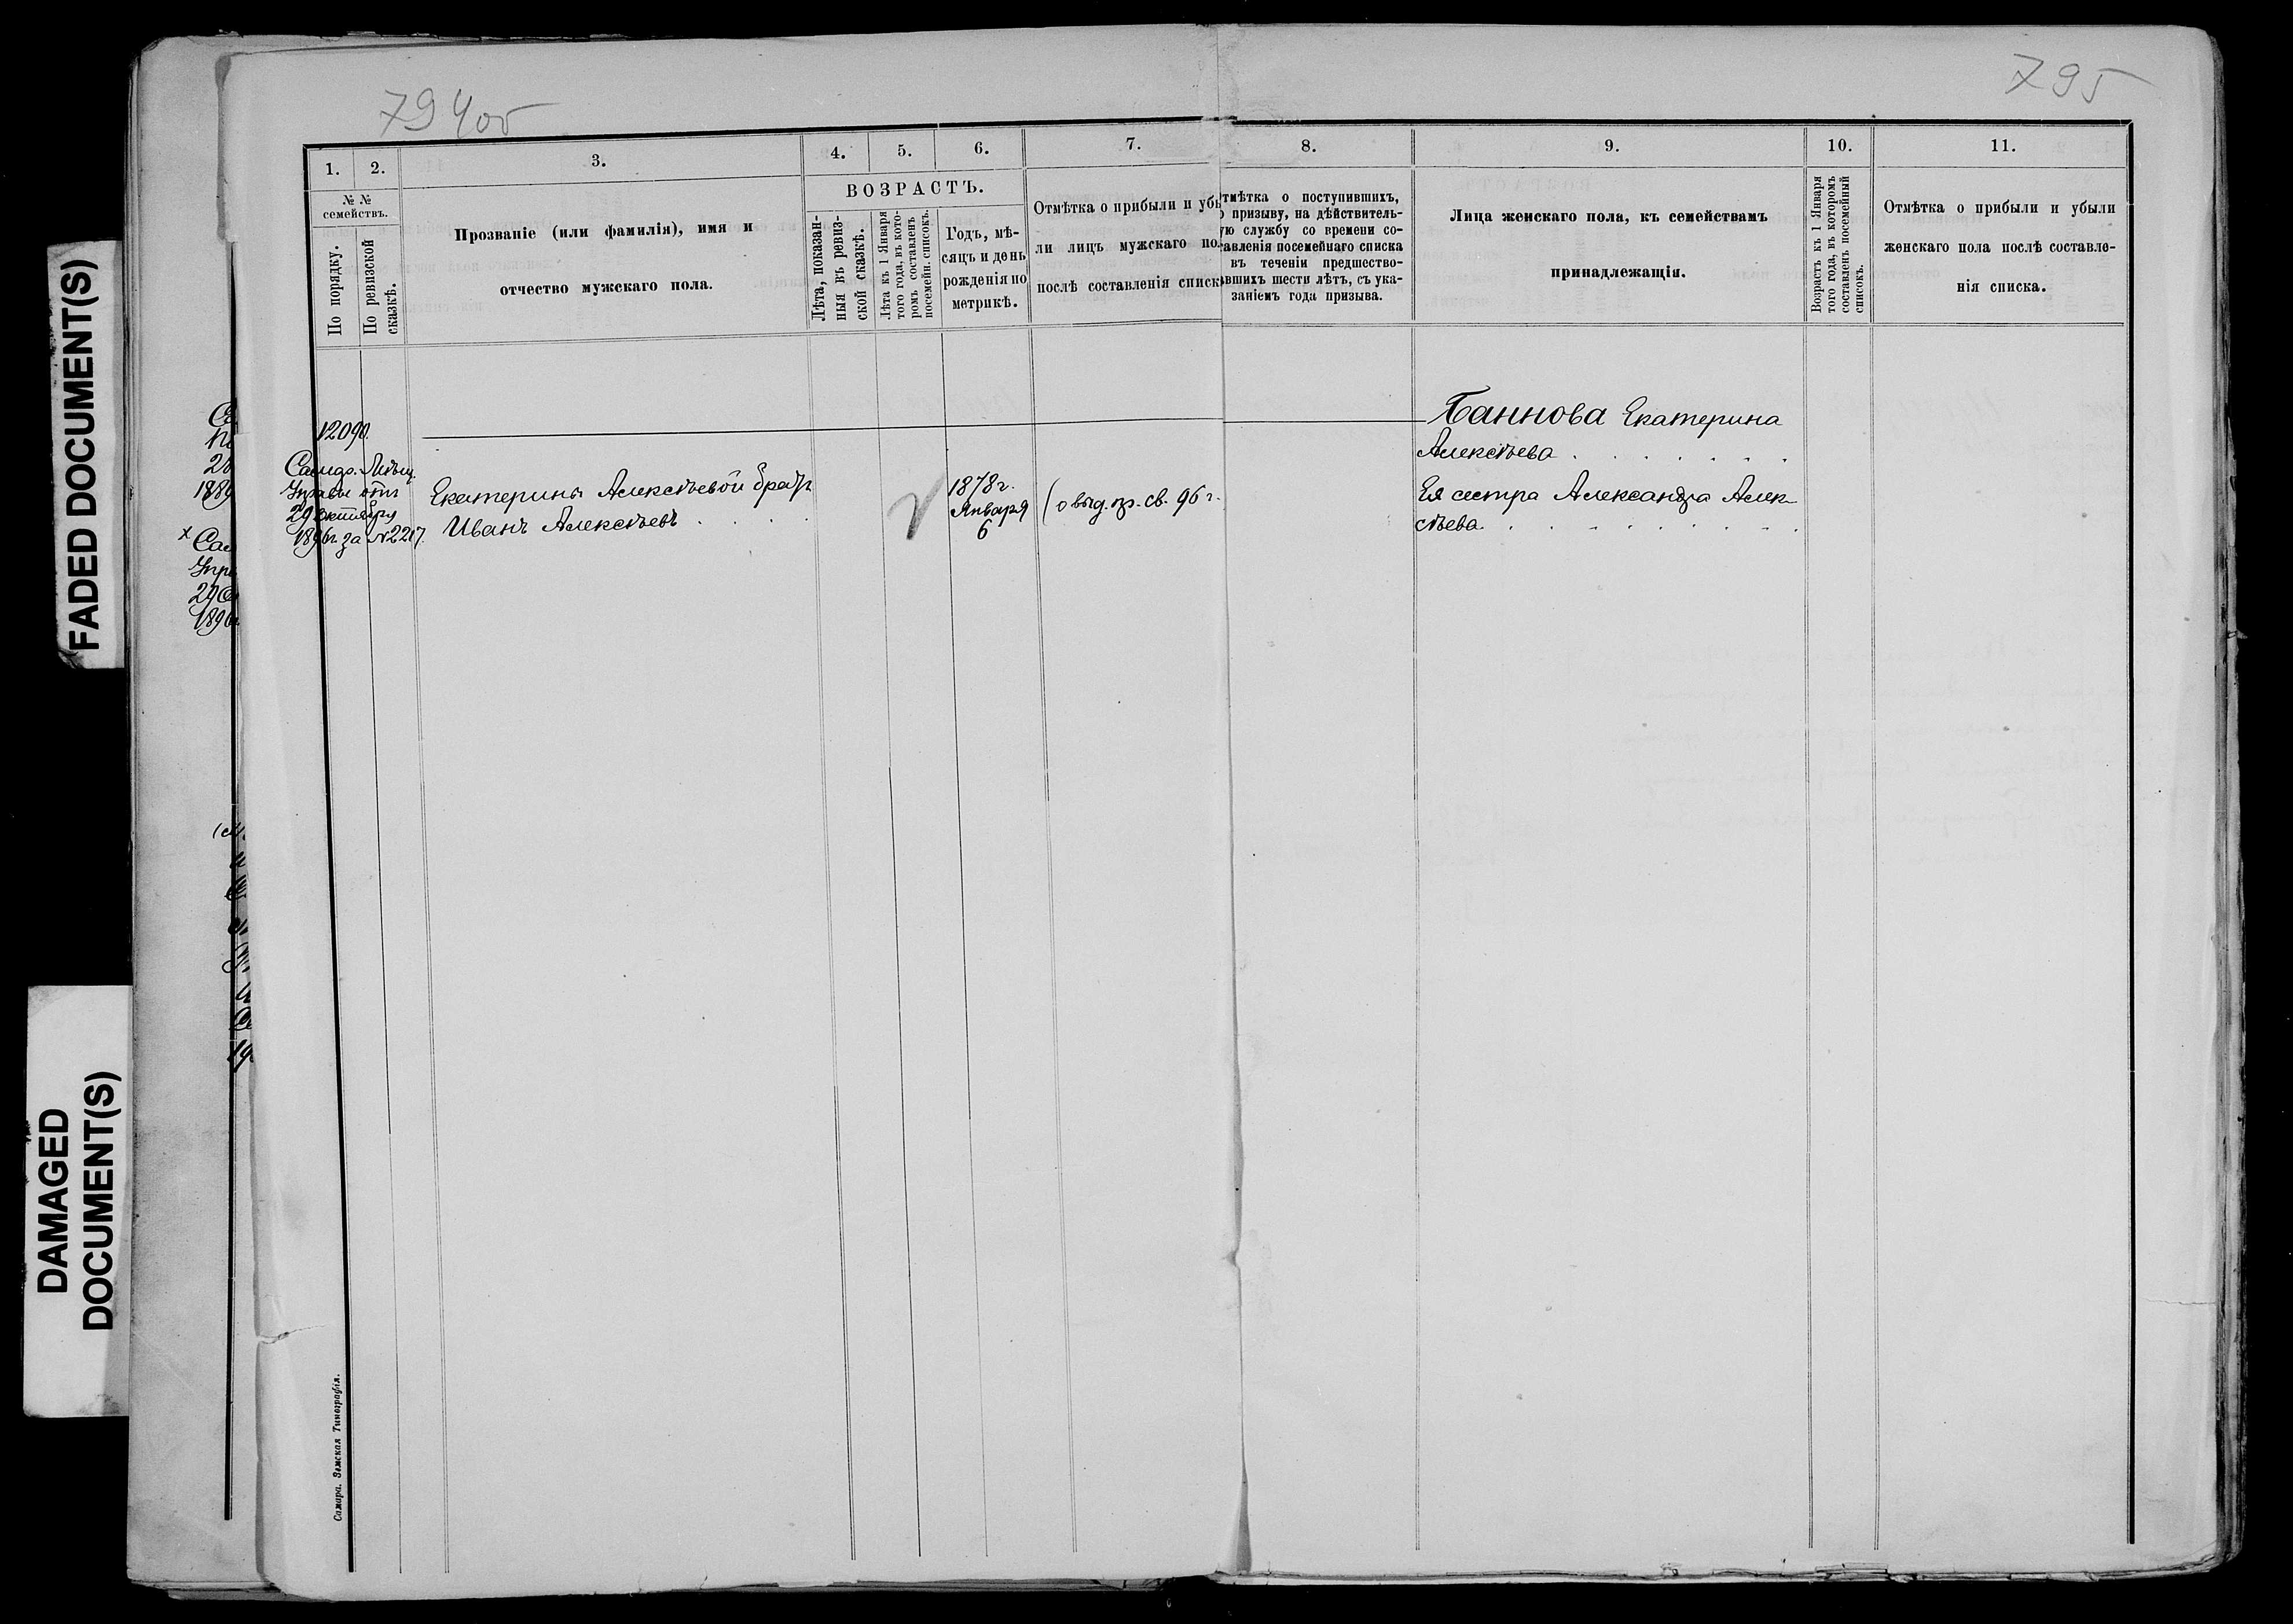 794об
795
1.
2.
3.
4.
5.
6.
7.
8.
9.
10.
11.
№ №
семействъ.
По порядку.
По ревизской
сказкѣ.
Прозваніе (или фамилія), имя и
отчество мужскаго пола.
ВОЗРАСТЪ.
Лѣта, показан-
ныя въ ревиз-
ской сказкѣ.
Лѣта къ 1 Января
того года, въ кото-
ромъ составленъ
посемейн. списокъ.
Годъ, мѣ-
сяцъ и день
рожденія по
метрикѣ.
Отмѣтка о прибыли и убы
ли лицъ мужскаго по
послѣ составленія списк
тмѣтка о поступившихъ,
о призыву, на дѣйствитель-
ую службу со времени со-
тавленія посемейнаго списка
въ теченіи предшество-
вавшихъ шести лѣтъ, съ ука-
заніемъ года призыва.
Лица женскаго пола, къ семействамъ
принадлежащія.
Возрастъ къ 1 Января
того года, въ которомъ
составленъ посемейный
списокъ.
Отмѣтка о прибыли и убыли
женскаго пола послѣ составле-
нія списка.
12090.
Самар. Мѣщ.
Управы отъ
29 октября
1896г за №2217.
Екатерины Алексѣевой братъ
Иванъ Алексѣевъ
1878г.
Января
6
(о выд. пр. св. 96 г.
Баннова Екатерина
Алексѣева
Ея сестра Александра Алек-
сѣева
1889
х Сам
Упр
29 О
1896г
Самара. Земская Типографія.
FADED DOCUMENT(S)
DAMAGED
DOCUMENT(S)